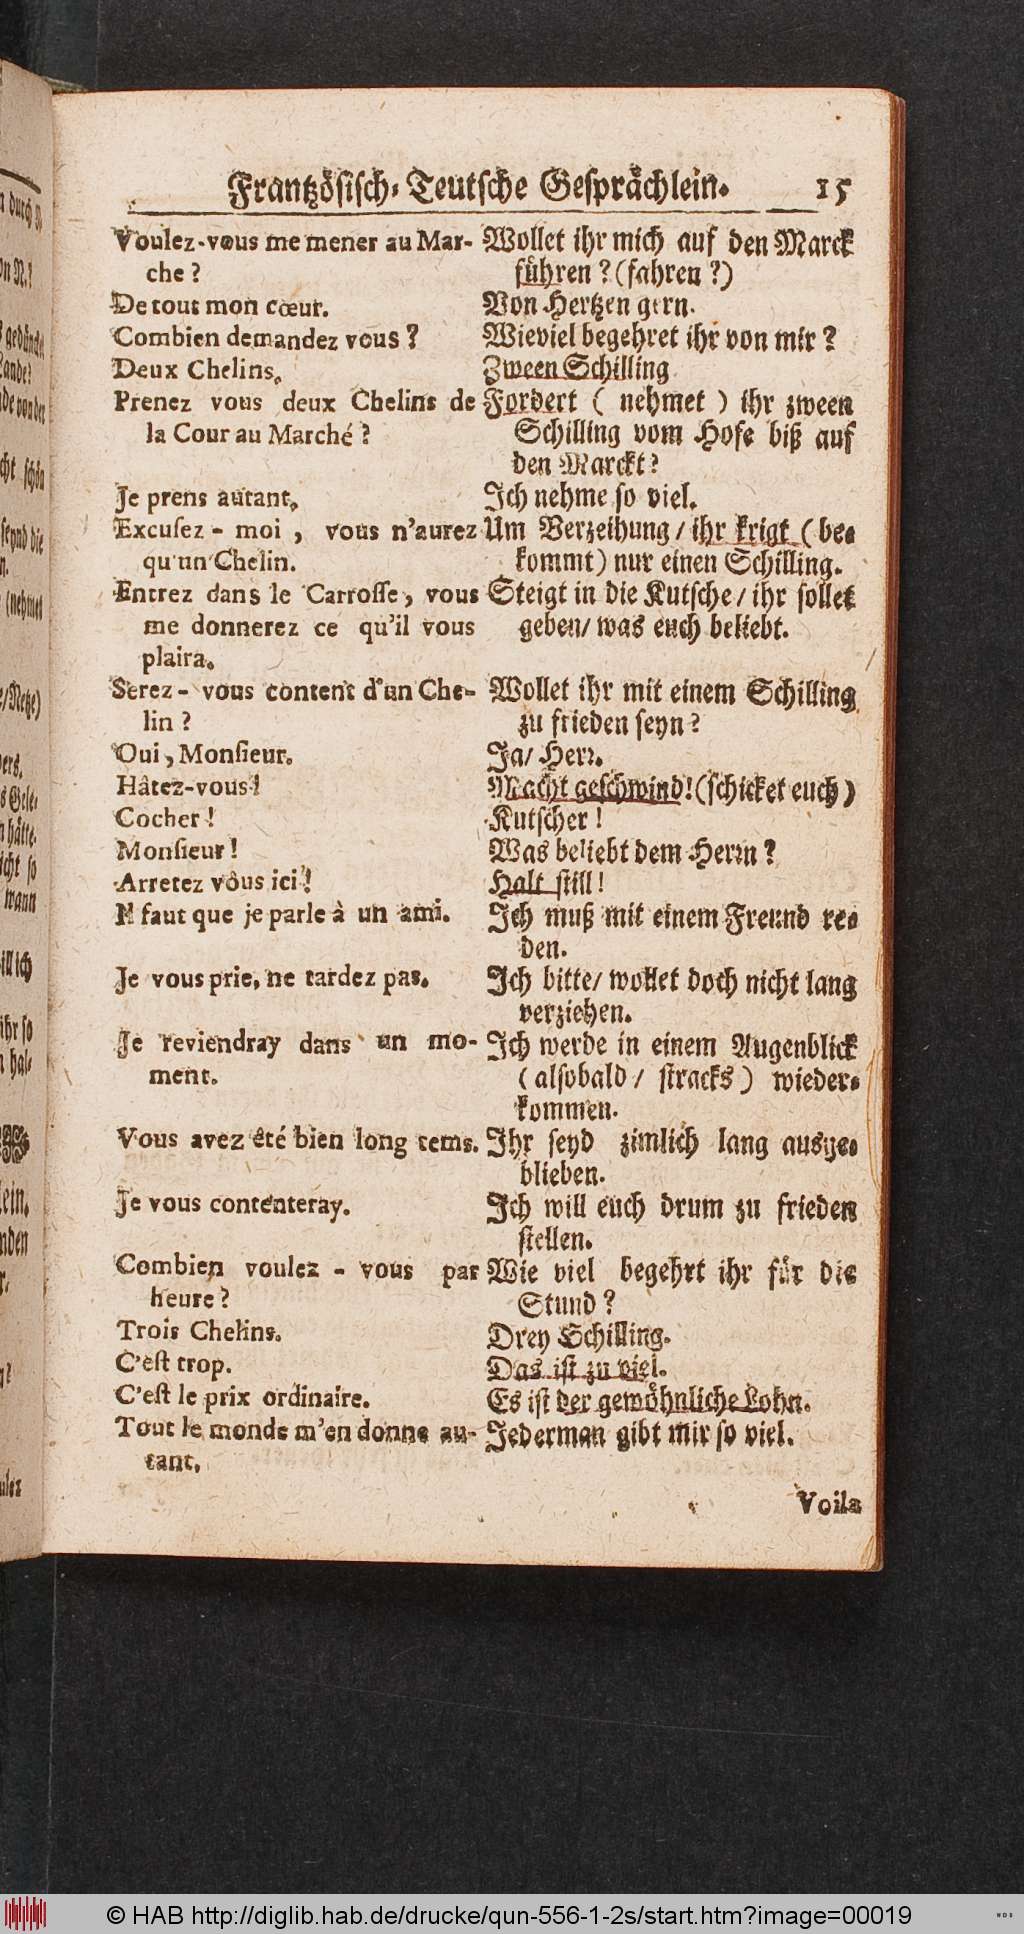 Frantzösisch-Teutsche Gesprächlein. 15
Voulez-vous me mener au Mar-
che?
De tout mon cœur.
Combien demandez vous?
Deux Chelins.
Prenez vous deux Chelins de
la Cour au Marché?
Je prens autant.
Excusez-moi, vous n'aurez
qu'un Chelin.
Entrez dans le Carrosse, vous
me donnerez ce qu'il vous
plaira.
Serez-vous content d'un Che-
lin?
Oui, Monsieur.
Hâtez-vous!
Cocher!
Monsieur!
Arretez vôus ici!
Il faut que je parle à un ami.
Je vous prie, ne tardez pas.
Je reviendray dans un mo-
ment.
Vous avez êté bien long tems.
Je vous contenteray.
Combien voulez-vous par
heure?
Trois Chelins.
C'est trop.
C'est le prix ordinaire.
Tout le monde m'en donne au-
tant.
Wollet ihr mich auf den Marck
führen? (fahren?)
Von Hertzen gern.
Wieviel begehret ihr von mir?
Zween Schilling
Fordert (nehmet) ihr zween
Schilling vom Hofe biß auf
den Marckt?
Ich nehme so viel.
Um Verzeihung/ ihr krigt (be-
kommt) nur einen Schilling.
Steigt in die Kutsche/ ihr sollet
geben/ was euch beliebt.
Wollet ihr mit einem Schilling
zu frieden seyn?
Ja/ Herr.
Macht geschwind! (schicket euch)
Kutscher!
Was beliebt dem Herrn?
Halt still!
Ich muß mit einem Freund re-
den.
Ich bitte/ wollet doch nicht lang
verziehen.
Ich werde in einem Augenblick
(alsobald/ stracks) wieder-
kommen.
Ihr seyd zimlich lang ausge-
blieben.
Ich will euch drum zu frieden
stellen.
Wie viel begehrt ihr für die
Stund?
Drey Schilling.
Das ist zu viel.
Es ist der gewöhnliche Lohn.
Jederman gibt mir so viel.
Voila
© HAB http://diglib.hab.de/drucke/qun-556-1-2s/start.htm?image=00019